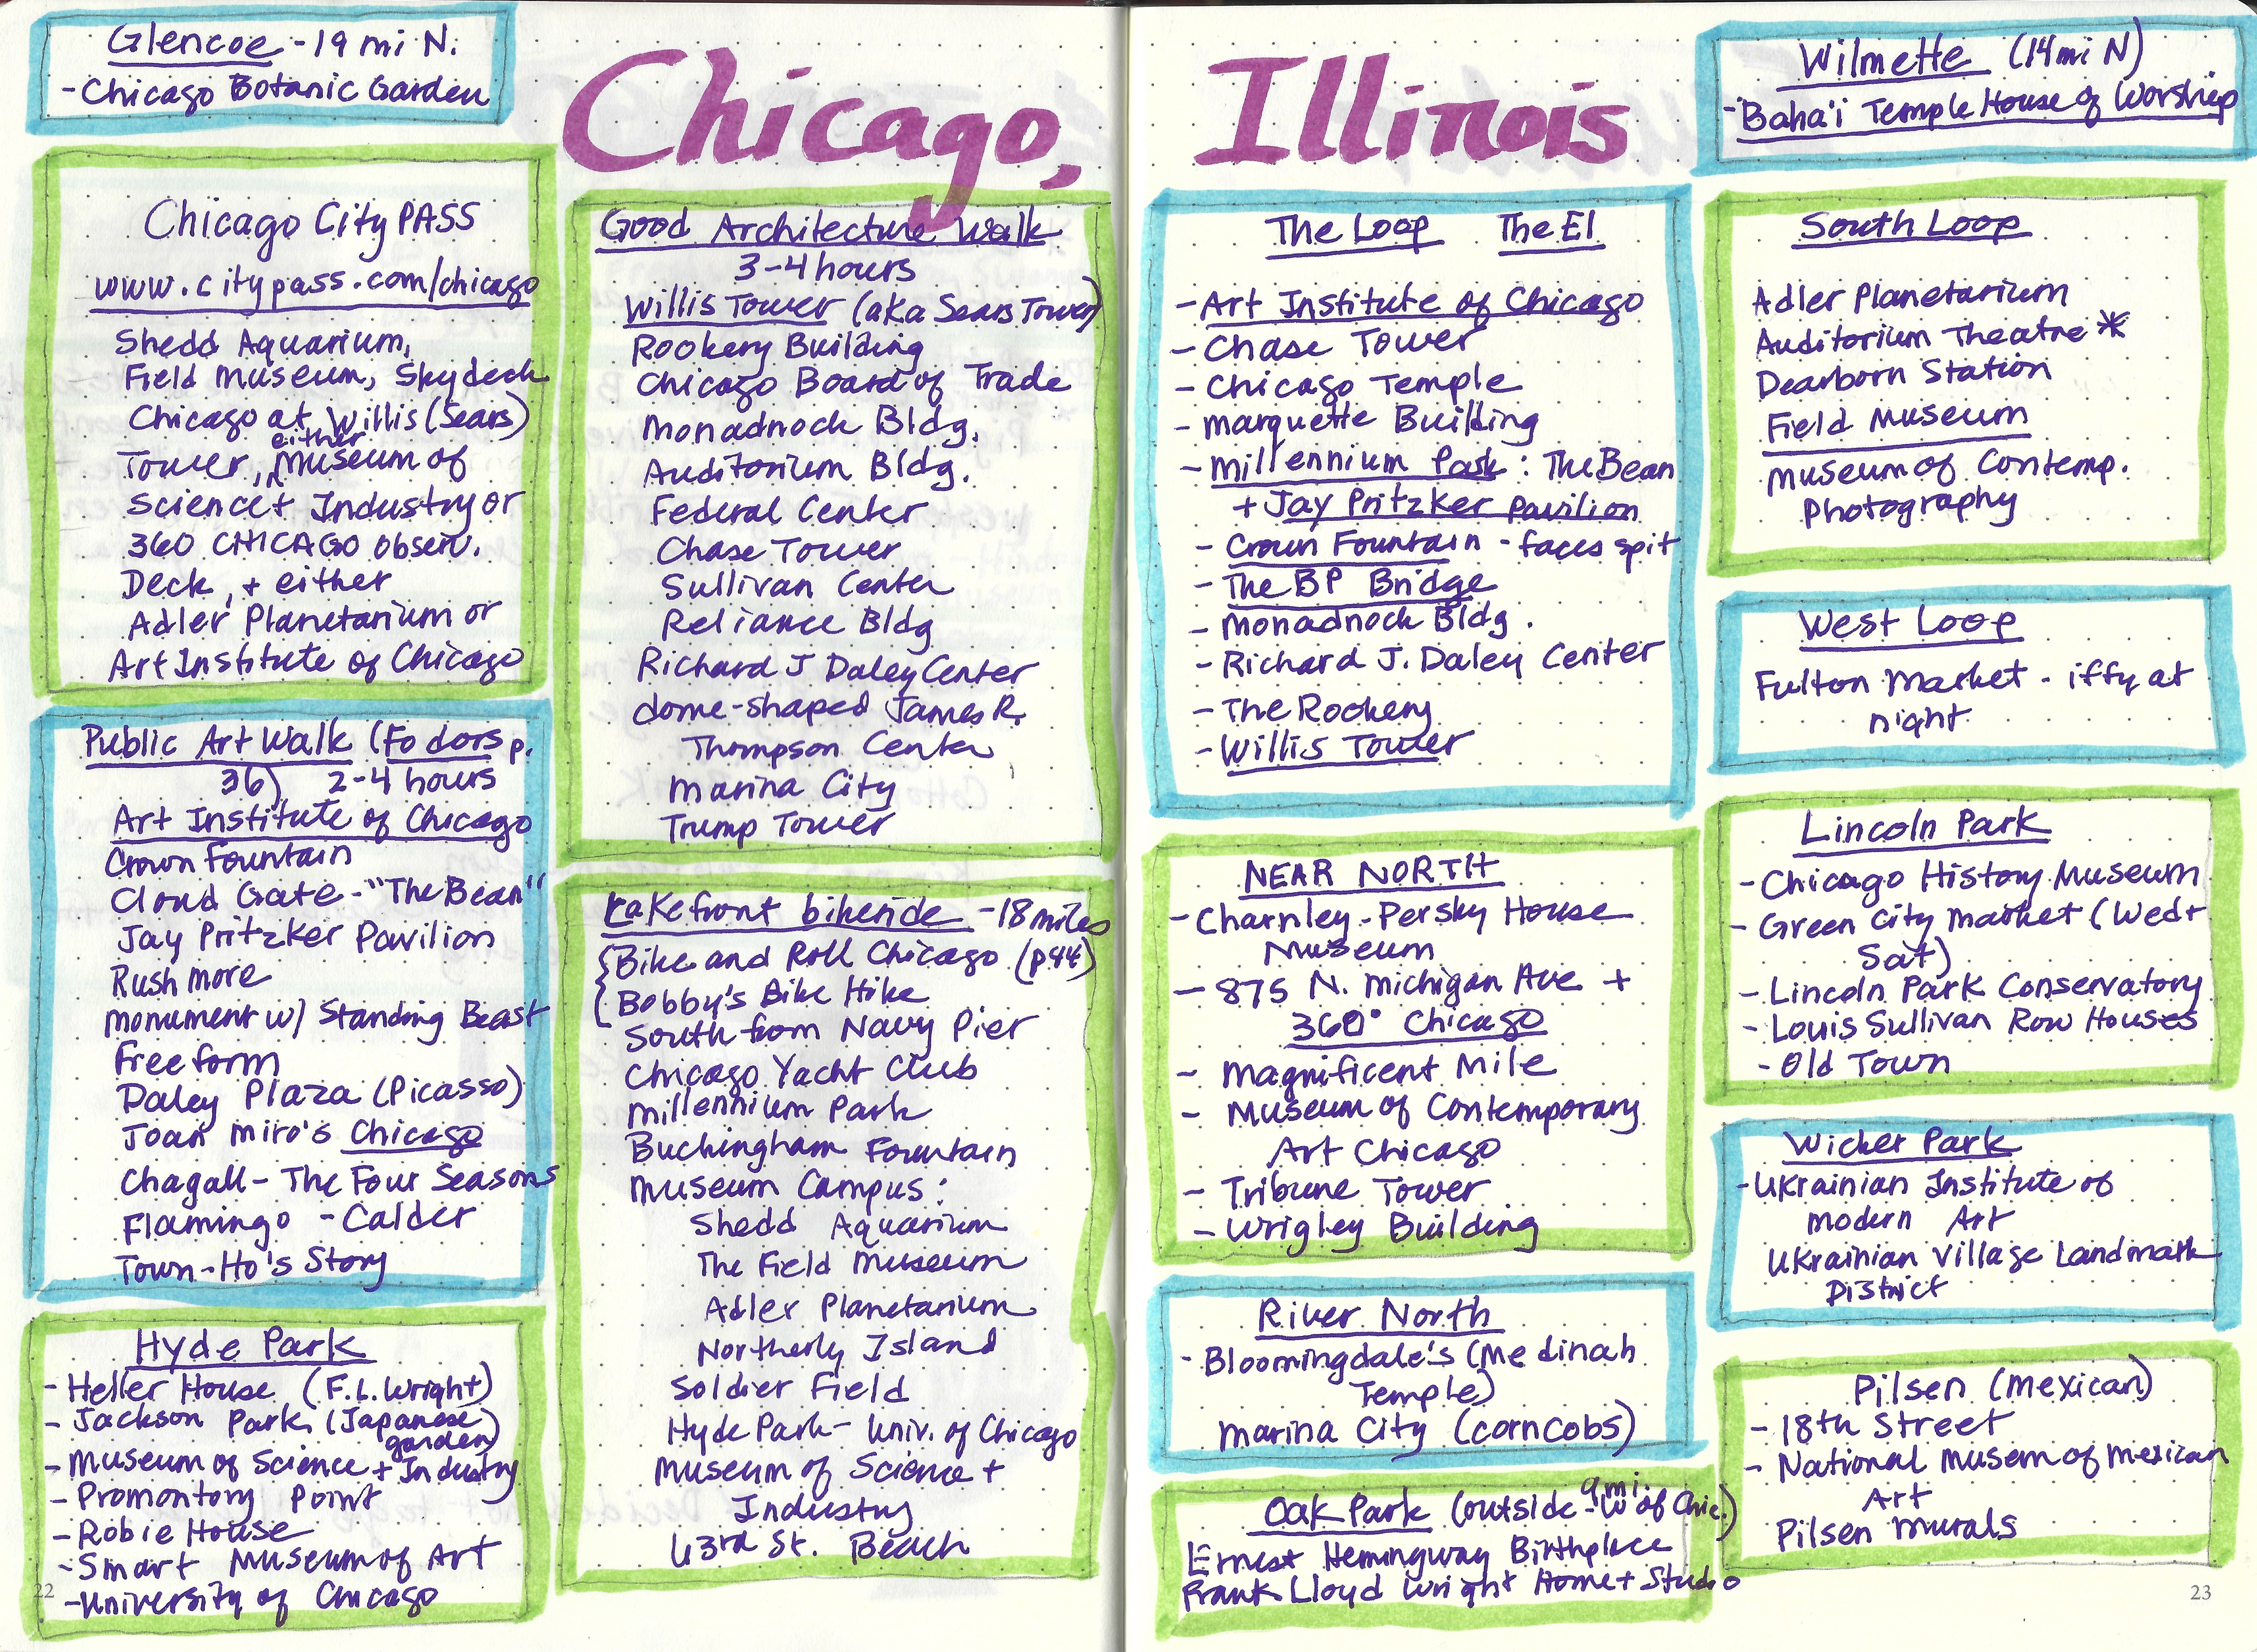 Glencoe - 19 mi N.
- Chicago Botanic Garden
Chicago, Illinois
Chicago CityPASS
www.citypass.com/chicago
Shedd Aquarium,
Field Museum, Skydeck
Chicago at Willis (Sears)
either
Tower, Museum of
Science + Industry or
360 CHICAGO Observ.
Deck, + either
Adler Planetarium or
Art Institute of Chicago
Public Art Walk (Fodors p.
36) 2-4 hours
Art Institute of Chicago
Crown Fountain
Cloud Gate - "The Bean"
Jay Pritzker Pavilion
Rush more
Monument w/ Standing Beast
Free form
Daley Plaza (Picasso)
Joan Miro's Chicago
Chagall - The Four Seasons
Flamingo - Calder
Town-Ho's Story
Hyde Park
- Heller House (F.L. Wright)
- Jackson Park (Japanese
garden)
- Museum of Science + Industry
- Promontory Point
- Robie House
- Smart Museum of Art
- University of Chicago
22
Good Architecture Walk
3-4 hours
Willis Tower (aka Sears Tower)
Rookery Building
Chicago Board of Trade
Monadnock Bldg.
Auditorium Bldg.
Federal Center
Chase Tower
Sullivan Center
Reliance Bldg
Richard J Daley Center
dome-shaped James R.
Thompson Center
Marina City
Trump Tower
Lakefront bikeride - 18 miles
Bike and Roll Chicago (p44)
Bobby's Bike Hike
South from Navy Pier
Chicago Yacht Club
Millennium Park
Buckingham Fountain
Museum Campus:
Shedd Aquarium
The Field Museum
Adler Planetarium
Northerly Island
Soldier Field
Hyde Park - Univ. of Chicago
Museum of Science +
Industry
63rd St. Beach
The Loop The El
- Art Institute of Chicago
- Chase Tower
- Chicago Temple
- Marquette Building
- Millennium Park: The Bean
+ Jay Pritzker Pavilion
- Crown Fountain - faces spit
- The BP Bridge
- Monadnock Bldg.
- Richard J. Daley Center
- The Rookery
- Willis Tower
NEAR NORTH
- Charnley-Persky House
Museum
- 875 N. Michigan Ave +
360° Chicago
- Magnificent Mile
- Museum of Contemporary
Art Chicago
- Tribune Tower
- Wrigley Building
River North
- Bloomingdale's (Medinah
Temple)
Marina City (corncobs)
9 mi.
Oak Park (outside - W of Chic.)
Ernest Hemingway Birthplace
Frank Lloyd Wright Home + Studio
Wilmette (14 mi N)
- Baha'i Temple House of Worship
South Loop
Adler Planetarium
Auditorium Theatre *
Dearborn Station
Field Museum
Museum of Contemp.
Photography
West Loop
Fulton Market - iffy at
night
Lincoln Park
- Chicago History Museum
- Green City Market (Wed +
Sat)
- Lincoln Park Conservatory
- Louis Sullivan Row Houses
- Old Town
Wicker Park
- Ukrainian Institute of
Modern Art
Ukrainian Village Landmark
District
Pilsen (Mexican)
- 18th Street
- National Museum of Mexican
Art
Pilsen Murals
23